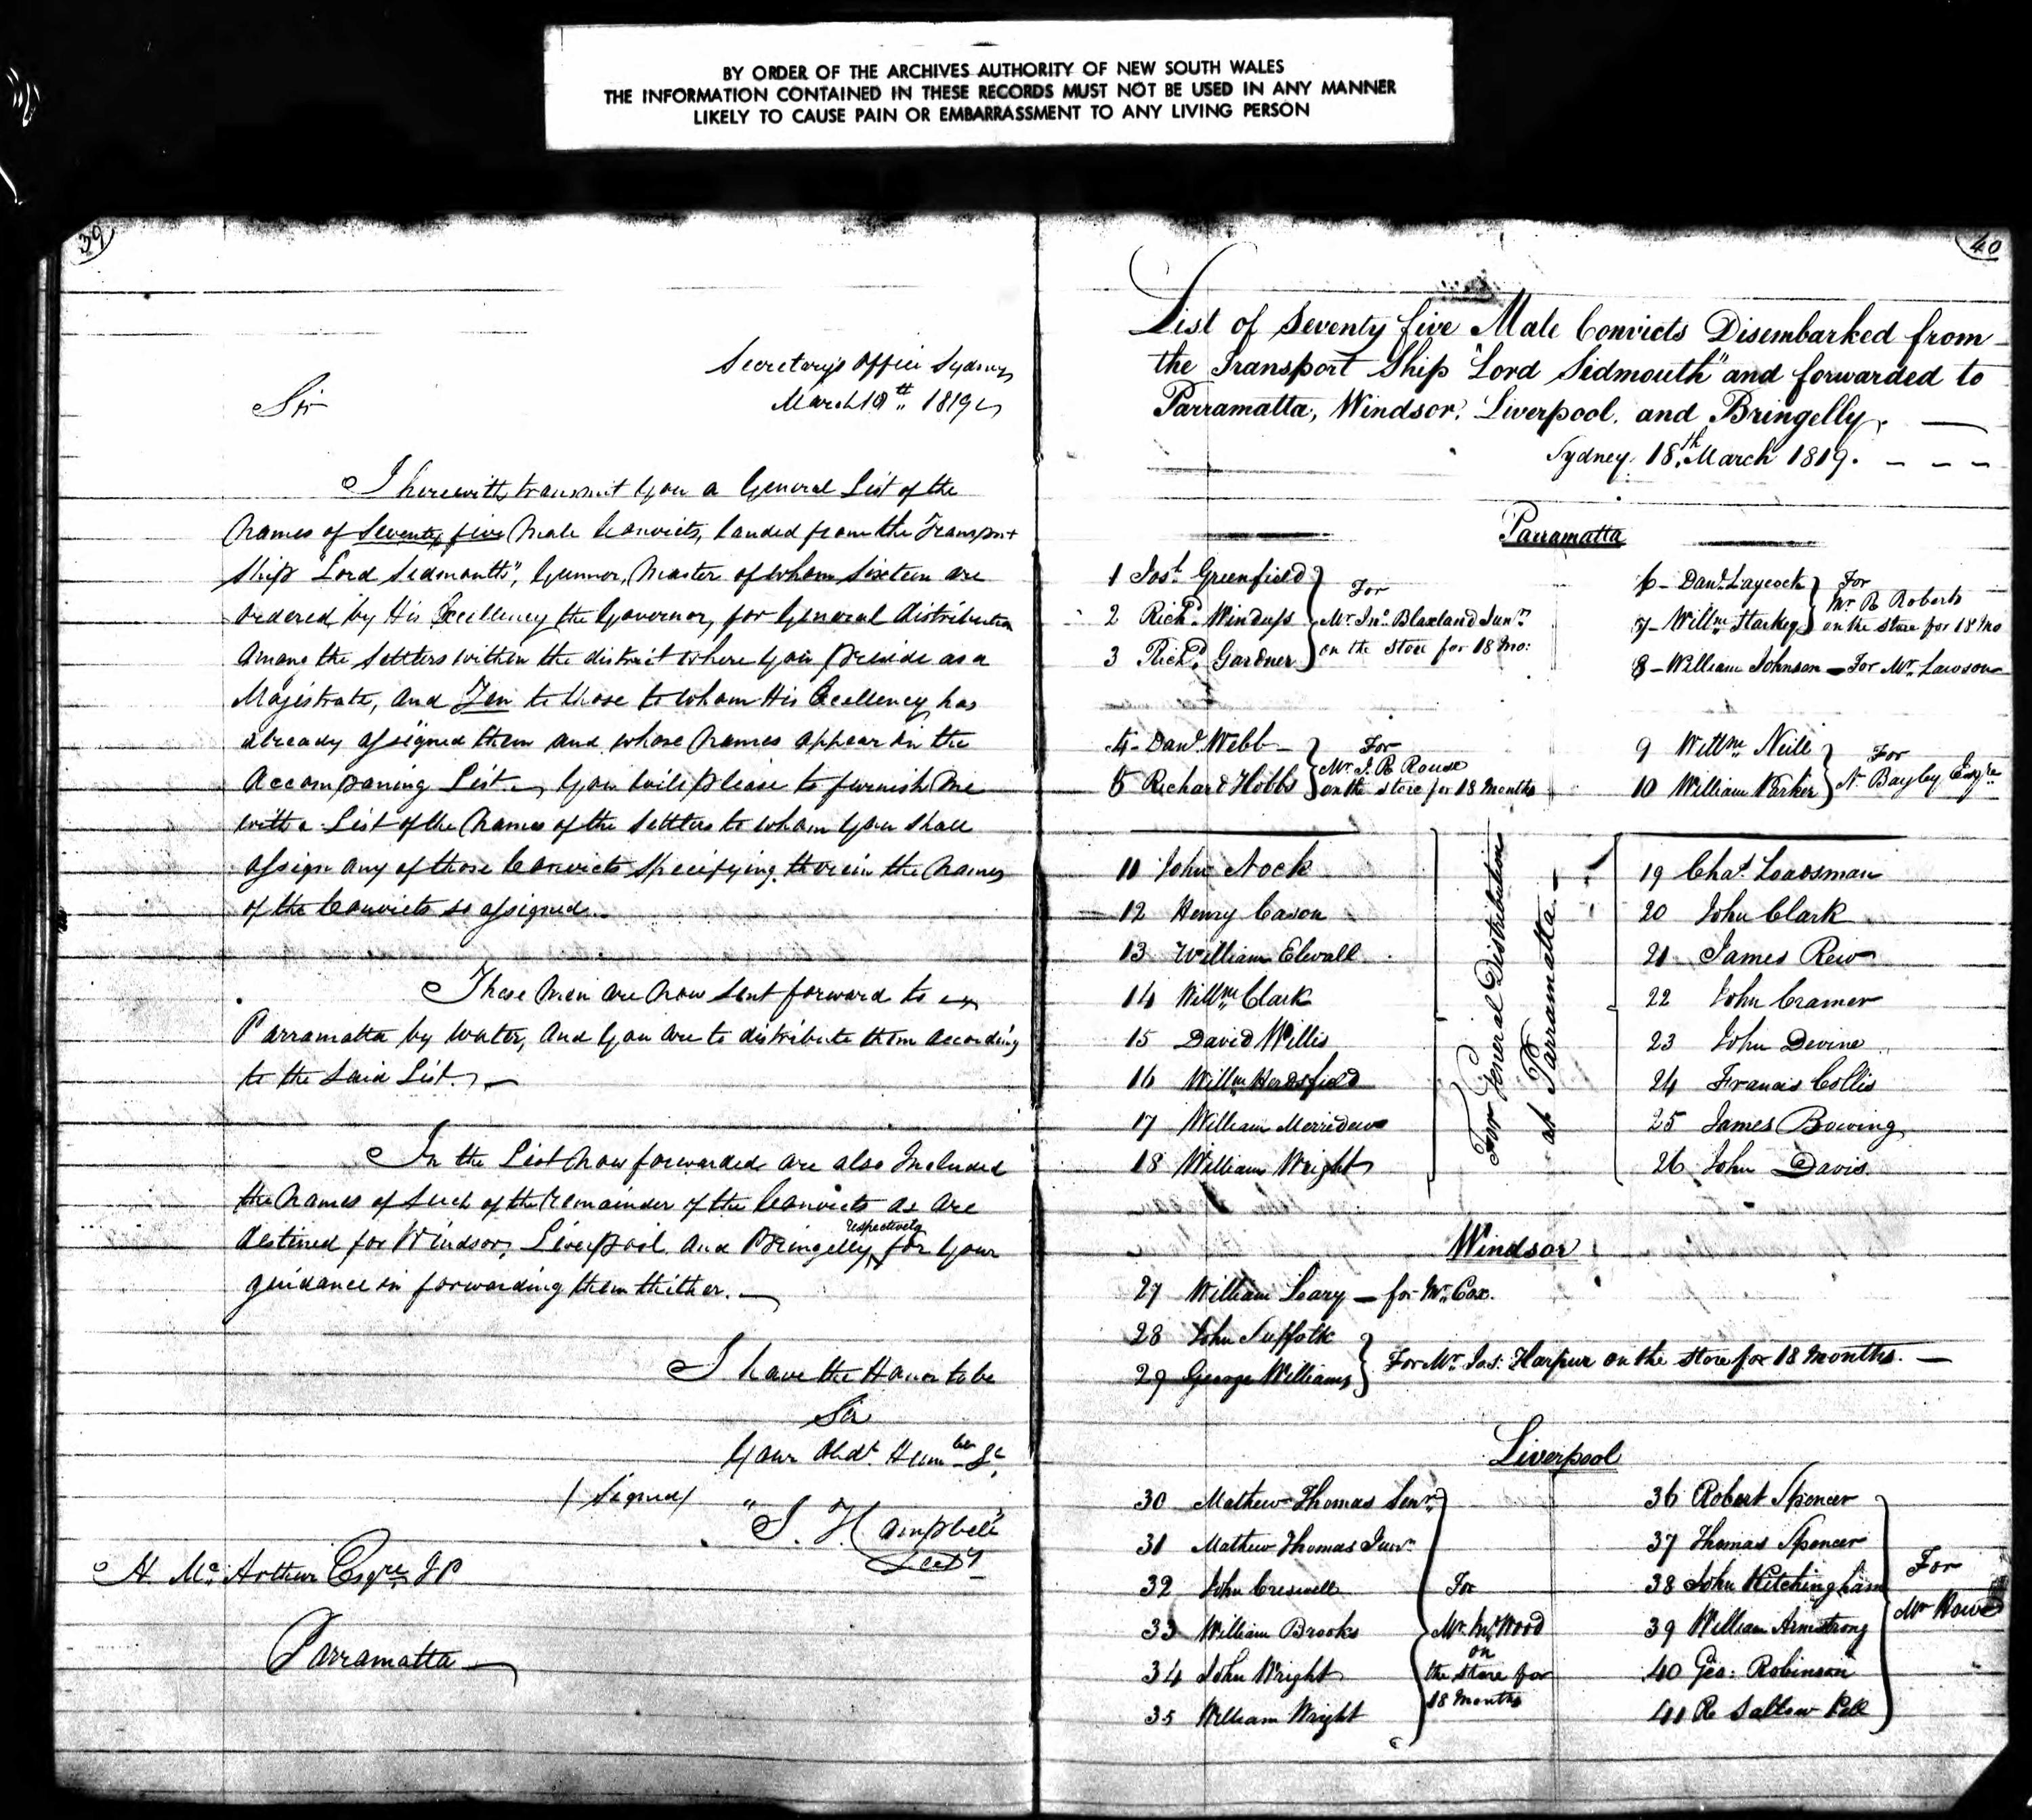 BY ORDER OF THE ARCHIVES AUTHORITY OF NEW SOUTH WALES
THE INFORMATION CONTAINED IN THESE RECORDS MUST NOT BE USED IN ANY MANNER
LIKELY TO CAUSE PAIN OR EMBARRASSMENT TO ANY LIVING PERSON
39
Secretary's Office Sydney
March 18th. 1819
Sir
I herewith transmit you a General List of the
Names of Seventy five Male Convicts, landed from the Transport
Ship "Lord Sidmouth", Gunner, Master of whom Sixteen are
ordered by His Excellency the Governor, for General distribution
Among the Settlers within the district where you preside as a
Majistrate, and Ten to those to whom His Excellency has
already assigned them and whose Names appear in the
Accompaning List. You will please to furnish me
with a List of the Names of the Settlers to whom you shall
assign any of those Convicts specifying therein the Names
of the Convicts so assigned.
These Men are now sent forward to
Parramatta by water, and you are to distribute them according
to the said List.
In the List now forwarded are also Included
the Names of such of the remainder of the Convicts as are
respectively
destined for Windsor, Liverpool and Bringelly, for your
guidance in forwarding them thither.
I have the Honor to be
Sir
Your Obdt. Humble St.
(Signed) "J. T. Campbell
Secy.
H. Mc. Arthur Esqre. JP
Parramatta
40
List of Seventy five Male Convicts Disembarked from
the Transport Ship "Lord Sidmouth" and forwarded to
Parramatta, Windsor, Liverpool, and Bringelly.
Sydney 18th. March 1819.
Parramatta
1 Josh. Greenfield
2 Richd. Windups
3 Richd. Gardner
For
Mr. Jno. Blaxland Junr.
on the store for 18 mo:
6 - Danl. Laycock
7 - Willm. Harkey
For
Mr. R Roberts
on the store for 18 mo
8 - William Johnson - For Mr. Lawson
4 - Danl. Webb -
5 Richard Hobbs
For
Mr. J. R Rouse
on the store for 18 Months
9 Willm Neile
10 William Parker
For
N. Bayley Esqre
11 John Nock
12 Henry Cason
13 William Elwall
14 Willm Clark
15 David Willis
16 Willm Herdsfield
17 William Merridew
18 William Wright
For General Distribution
at Parramatta -
19 Chas. Loadsman
20 John Clark
21 James Rew
22 John Cramer
23 John Devine
24 Francis Collis
25 James Bowing
26 John Davis.
Windsor
27 William Leary - for Mr. Cox.
28 John Suffolk
29 George Williams
For Mr. Jas. Harpur on the store for 18 Months. -
Liverpool
30 Mathew Thomas Senr.
31 Mathew Thomas Junr.
32 John Creswell
33 William Brooks
34 John Wright
35 William Wright
For
Mr. Wm. Wood
on
the store for
18 Months
36 Robert Spencer
37 Thomas Spencer
38 John Kitchingham
39 William Armstrong
40 Geo: Robinson
41 R Sallow Pell
For
Mr Howe